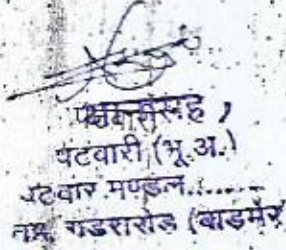 पटवारी (भू.अ.)
पटवार मण्डल.......
तह. गडरारोड (बाडमेर)